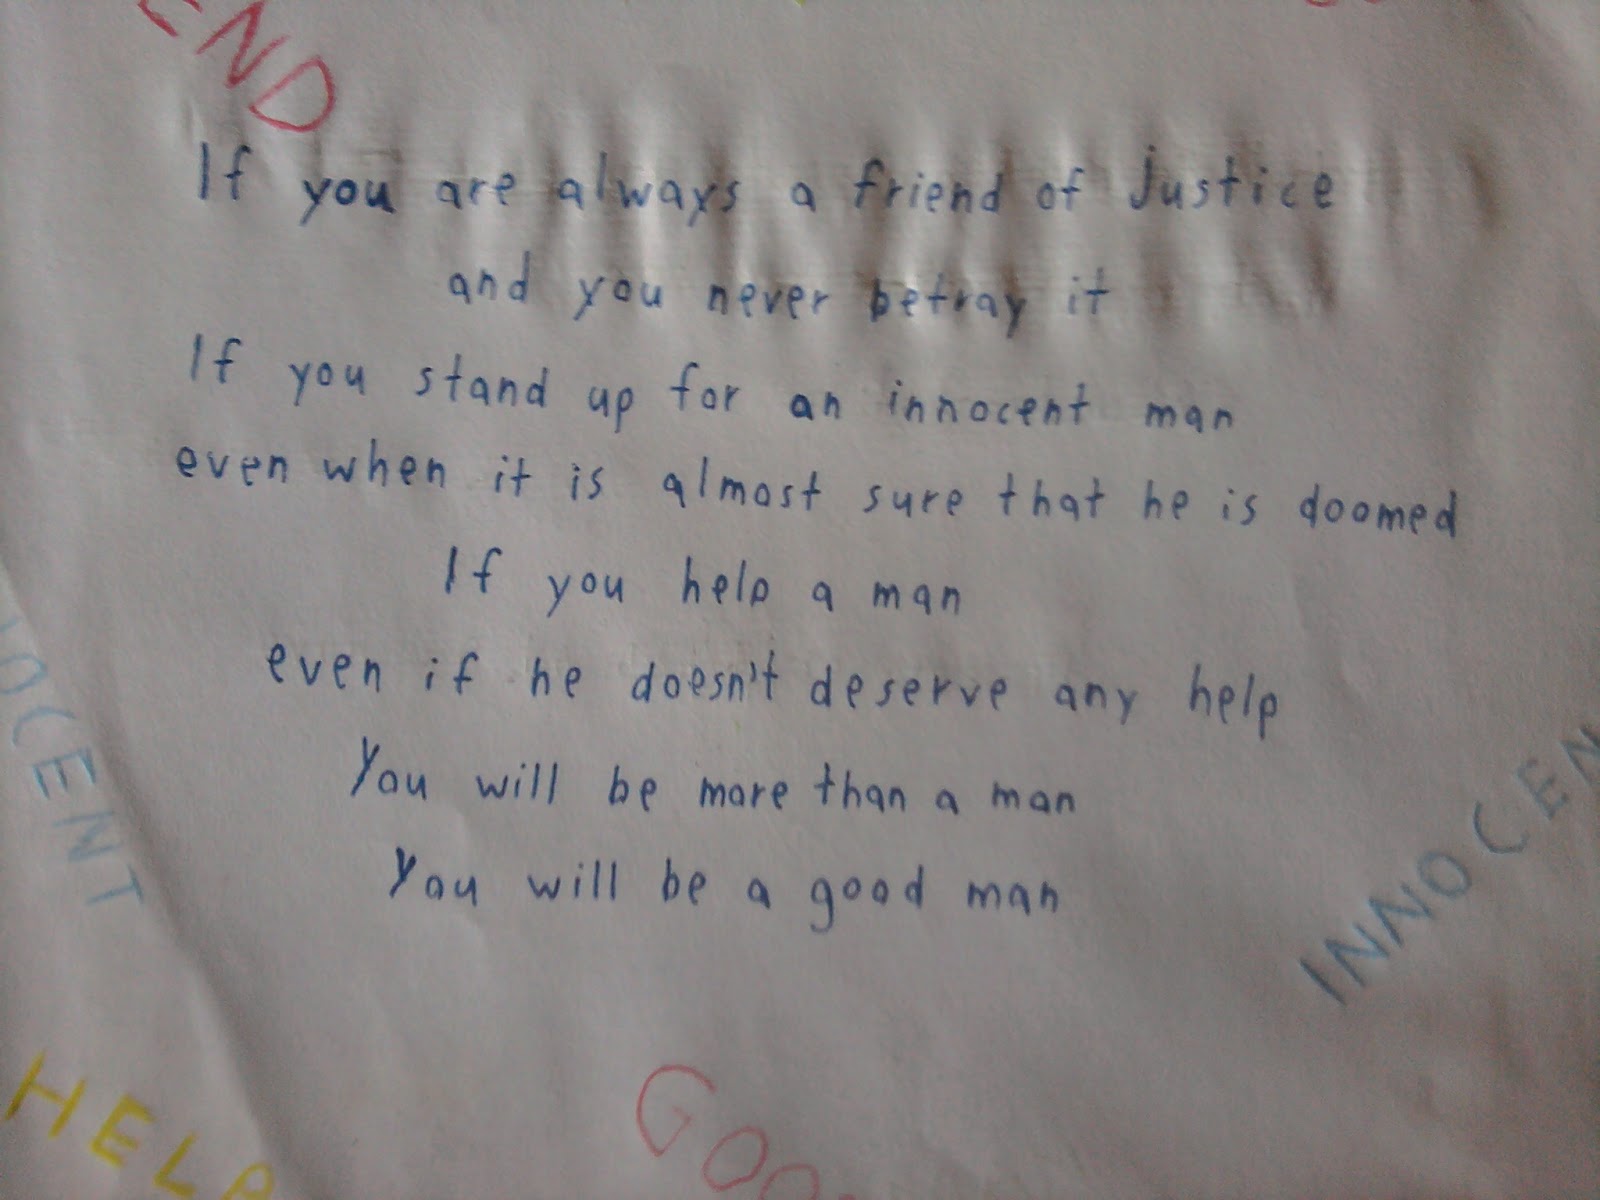 END
If you are always a friend of justice
and you never betray it
If you stand up for an innocent man
even when it is almost sure that he is doomed
If you help a man
even if he doesn't deserve any help
You will be more than a man
You will be a good man
OCENT
INNOCEN
HELP
GOO